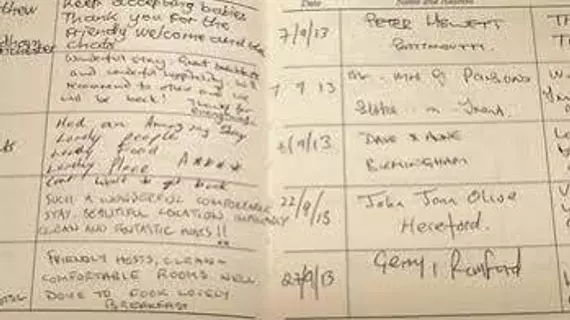 thew
Keep accepting babies
Thank you for the
friendly welcome and the
chats
Wonderful stay. Great breakfasts
and wonderful hospitality will
recommend to others and we
will be back!
Thanks for
everything
Had an Amazing Stay
Lovely people
Lovely food
Lovely Place A****
Can't wait to get back
SUCH A WONDERFUL COMFORTABLE
STAY. BEAUTIFUL LOCATION,
CLEAN AND FANTASTIC HOSTS!!
FRIENDLY HOSTS, CLEAN +
COMFORTABLE ROOMS WELL
DONE TO COOK LOVELY
BREAKFAST
Date
Name and Address
7/9/13
PETER HEWETT
7 9 13
Mr. Mrs G Parsons
Stoke on Trent.
/9/13
DAVE & ANNE
BIRMINGHAM
22/9/13
John Joan Olive
Hereford.
27/9/13
Gerry